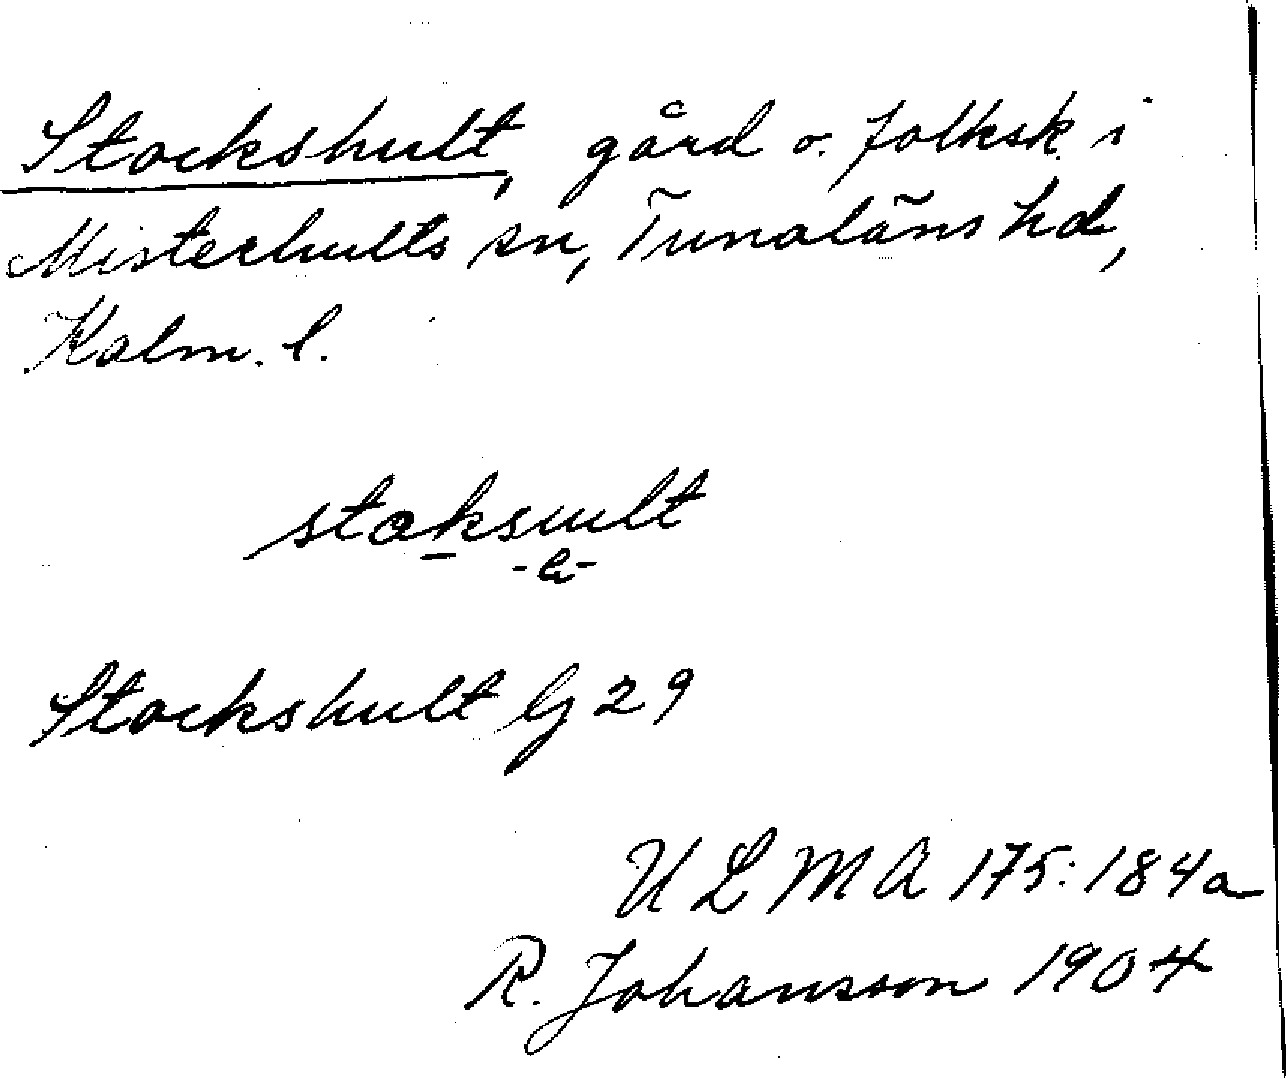 Stockshult, gård o. folksk. i
Misterhults sn, Tunaläns hd,
Kalm. l.
stoksult
Stockshult Gj 29
ULMA 175:184a
R. Johansson 1904